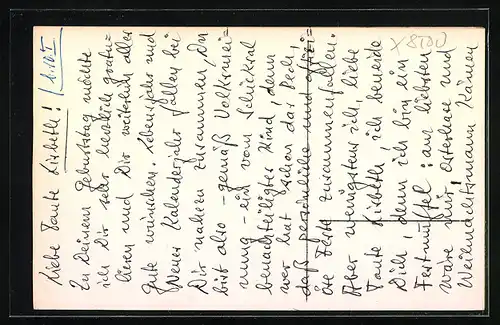 Liebe Tante Lisbeth! 1.10.I
Zu Deinem Geburtstag möchte
ich Dir sehr herzlich gratu-
lieren und Dir weiterhin alles
Gute wünschen. Lebensjahr und
Neues Kalenderjahr fallen bei
Dir nahezu zusammen, Du
bist also - gemäß Volksmei-
nung - ein vom Schicksal
benachteiligtes Kind, denn
wer hat schon das Pech,
daß persönliche und offizi-
öse Feste zusammenfallen.
Aber wenigstens ich, liebe
Tante Lisbeth, ich beneide
Dich! denn ich bin ein
Festmuffel: am liebsten
wäre mir, Osterhase und
Weihnachtsmann kämen